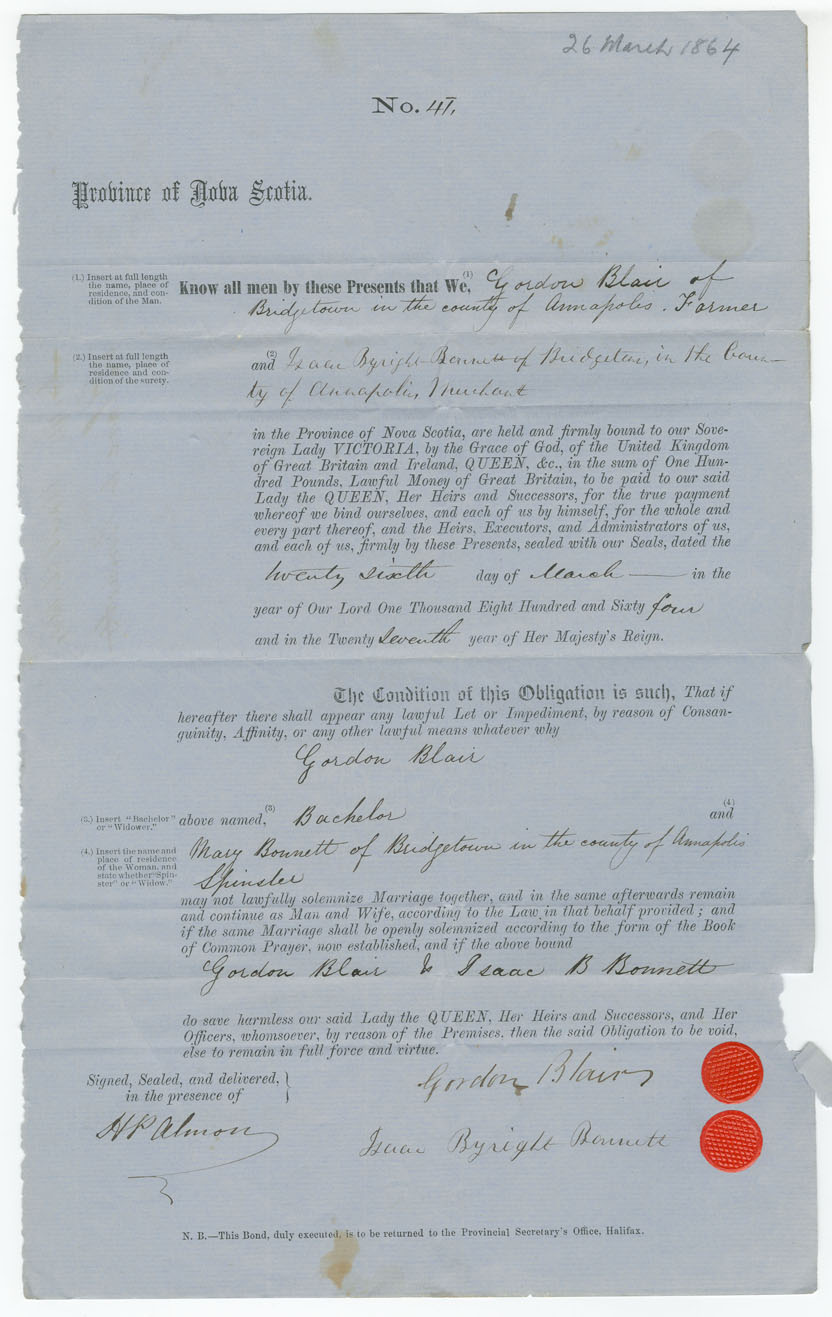 26 March 1864
No. 41,
Province of Nova Scotia.
(1.) Insert at full length
the name, place of
residence, and con-
dition of the Man.
Know all men by these Presents that We, (1) Gordon Blair of
Bridgetown in the county of Annapolis. Farmer
(2.) Insert at full length
the name, place of
residence and con-
dition of the surety.
and (2) Isaac Byright Bonnett of Bridgetown, in the Coun-
ty of Annapolis, Merchant
in the Province of Nova Scotia, are held and firmly bound to our Sove-
reign Lady VICTORIA, by the Grace of God, of the United Kingdom
of Great Britain and Ireland, QUEEN, &c., in the sum of One Hun-
dred Pounds, Lawful Money of Great Britain, to be paid to our said
Lady the QUEEN, Her Heirs and Successors, for the true payment
whereof we bind ourselves, and each of us by himself, for the whole and
every part thereof, and the Heirs, Executors, and Administrators of us,
and each of us, firmly by these Presents, sealed with our Seals, dated the
twenty sixth day of March — in the
year of Our Lord One Thousand Eight Hundred and Sixty four
and in the Twenty Seventh year of Her Majesty's Reign.
The Condition of this Obligation is such, That if
hereafter there shall appear any lawful Let or Impediment, by reason of Consan-
guinity, Affinity, or any other lawful means whatever why
Gordon Blair
(3.) Insert "Bachelor"
or "Widower."
above named, (3) Bachelor and (4)
(4.) Insert the name and
place of residence
of the Woman, and
state whether "Spin-
ster" or "Widow."
Mary Bonnett of Bridgetown in the county of Annapolis
Spinster
may not lawfully solemnize Marriage together, and in the same afterwards remain
and continue as Man and Wife, according to the Law in that behalf provided; and
if the same Marriage shall be openly solemnized according to the form of the Book
of Common Prayer, now established, and if the above bound
Gordon Blair & Isaac B Bonnett
do save harmless our said Lady the QUEEN, Her Heirs and Successors, and Her
Officers, whomsoever, by reason of the Premises. then the said Obligation to be void,
else to remain in full force and virtue.
Signed, Sealed, and delivered,
in the presence of
Gordon Blair
H P Almon
Isaac Byright Bonnett
N. B.—This Bond, duly executed, is to be returned to the Provincial Secretary's Office, Halifax.